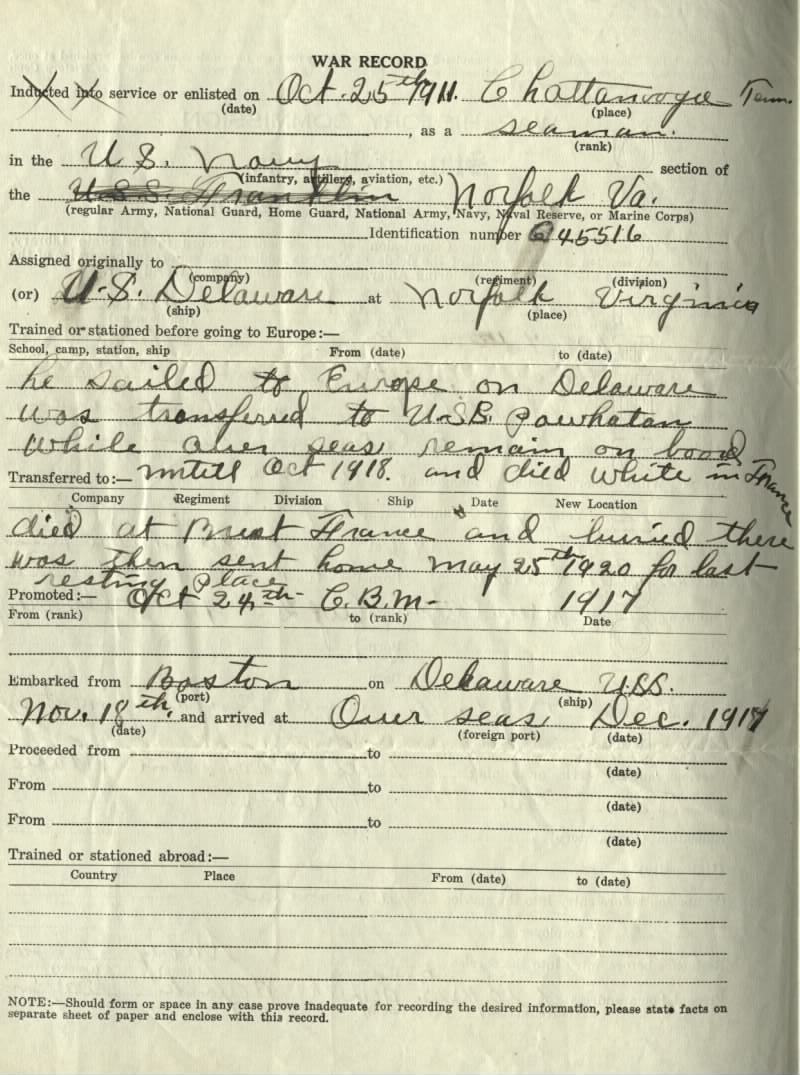 WAR RECORD
Inducted into service or enlisted on Oct. 25th 1911. Chattanooga Tenn.
(date) (place)
, as a seaman.
(rank)
in the U.S. Navy section of
(infantry, artillery, aviation, etc.)
the U.S.S. Franklin Norfolk Va.
(regular Army, National Guard, Home Guard, National Army, Navy, Naval Reserve, or Marine Corps)
Identification number 45516
Assigned originally to
(company) (regiment) (division)
(or) U.S. Delaware at Norfolk Virginia
(ship) (place)
Trained or stationed before going to Europe:—
School, camp, station, ship From (date) to (date)
he sailed to Europe on Delaware
was transferred to U.S.S. Powhatan
while over seas remain on board
Transferred to:— untill Oct 1918. and died while in France
Company Regiment Division Ship Date New Location
died at Brest France and buried there
was then sent home May 25th 1920 for last
resting place
Promoted:— Oct 24th C.B.M. 1917
From (rank) to (rank) Date
Embarked from Boston on Delaware U.S.S.
(port) (ship)
Nov. 18th. and arrived at Over seas Dec. 1917
(date) (foreign port) (date)
Proceeded from to
(date)
From to
(date)
From to
(date)
Trained or stationed abroad:—
Country Place From (date) to (date)
NOTE:—Should form or space in any case prove inadequate for recording the desired information, please state facts on
separate sheet of paper and enclose with this record.